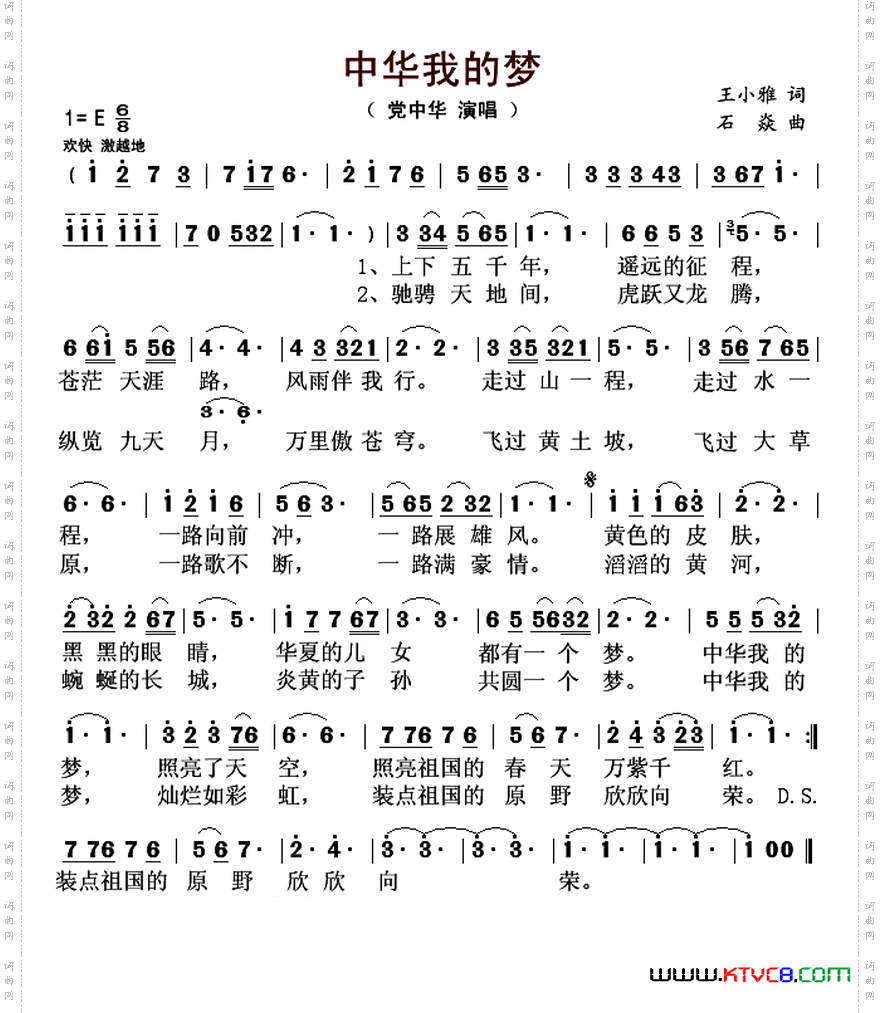 中华我的梦
（ 党中华 演唱 ）
王小雅 词
石 焱 曲
1= E 6/8
欢快 激越地
( 1 2 7 3 | 7 176· | 2 1 7 6 | 5 65 3· | 3 3 3 43 | 3 67 1· |
111 111 | 7 0 532 | 1· 1· ) | 3 34 5 65 | 1· 1· | 6 6 5 3 | 3 5· 5· |
1、上下 五 千 年， 遥远的征 程，
2、驰骋 天 地 间， 虎跃又龙 腾，
6 61 5 56 | 4· 4· | 4 3 321 | 2· 2· | 3 35 321 | 5· 5· | 3 56 7 65 |
苍茫 天涯 路， 风雨伴 我 行。 走过 山 一 程， 走过 水 一
3· 6·
纵览 九天 月， 万里傲 苍 穹。 飞过 黄 土 坡， 飞过 大 草
6· 6· | 1 2 1 6 | 5 6 3· | 5 65 2 32 | 1· 1· | 1 1 1 63 | 2· 2· |
程， 一路向前 冲， 一 路展 雄 风。 黄色的 皮 肤，
原， 一路歌不 断， 一 路满 豪 情。 滔滔的 黄 河，
2 32 2 67 | 5· 5· | 1 7 7 67 | 3· 3· | 6 5 5632 | 2· 2· | 5 5 5 32 |
黑 黑的眼 睛， 华夏的儿 女 都有一 个 梦。 中华我 的
蜿 蜒的长 城， 炎黄的子 孙 共圆一 个 梦。 中华我 的
1· 1· | 3 2 3 76 | 6· 6· | 7 76 7 6 | 5 6 7· | 2 4 3 23 | 1· 1· :||
梦， 照亮了天 空， 照亮祖国的 春 天 万紫千 红。
梦， 灿烂如彩 虹， 装点祖国的 原 野 欣欣向 荣。 D.S.
7 76 7 6 | 5 6 7· | 2· 4· | 3· 3· | 3· 3· | 1· 1· | 1· 1· | 1 00 ||
装点祖国的 原 野 欣 欣 向 荣。
www.KTVC8.com
词曲网